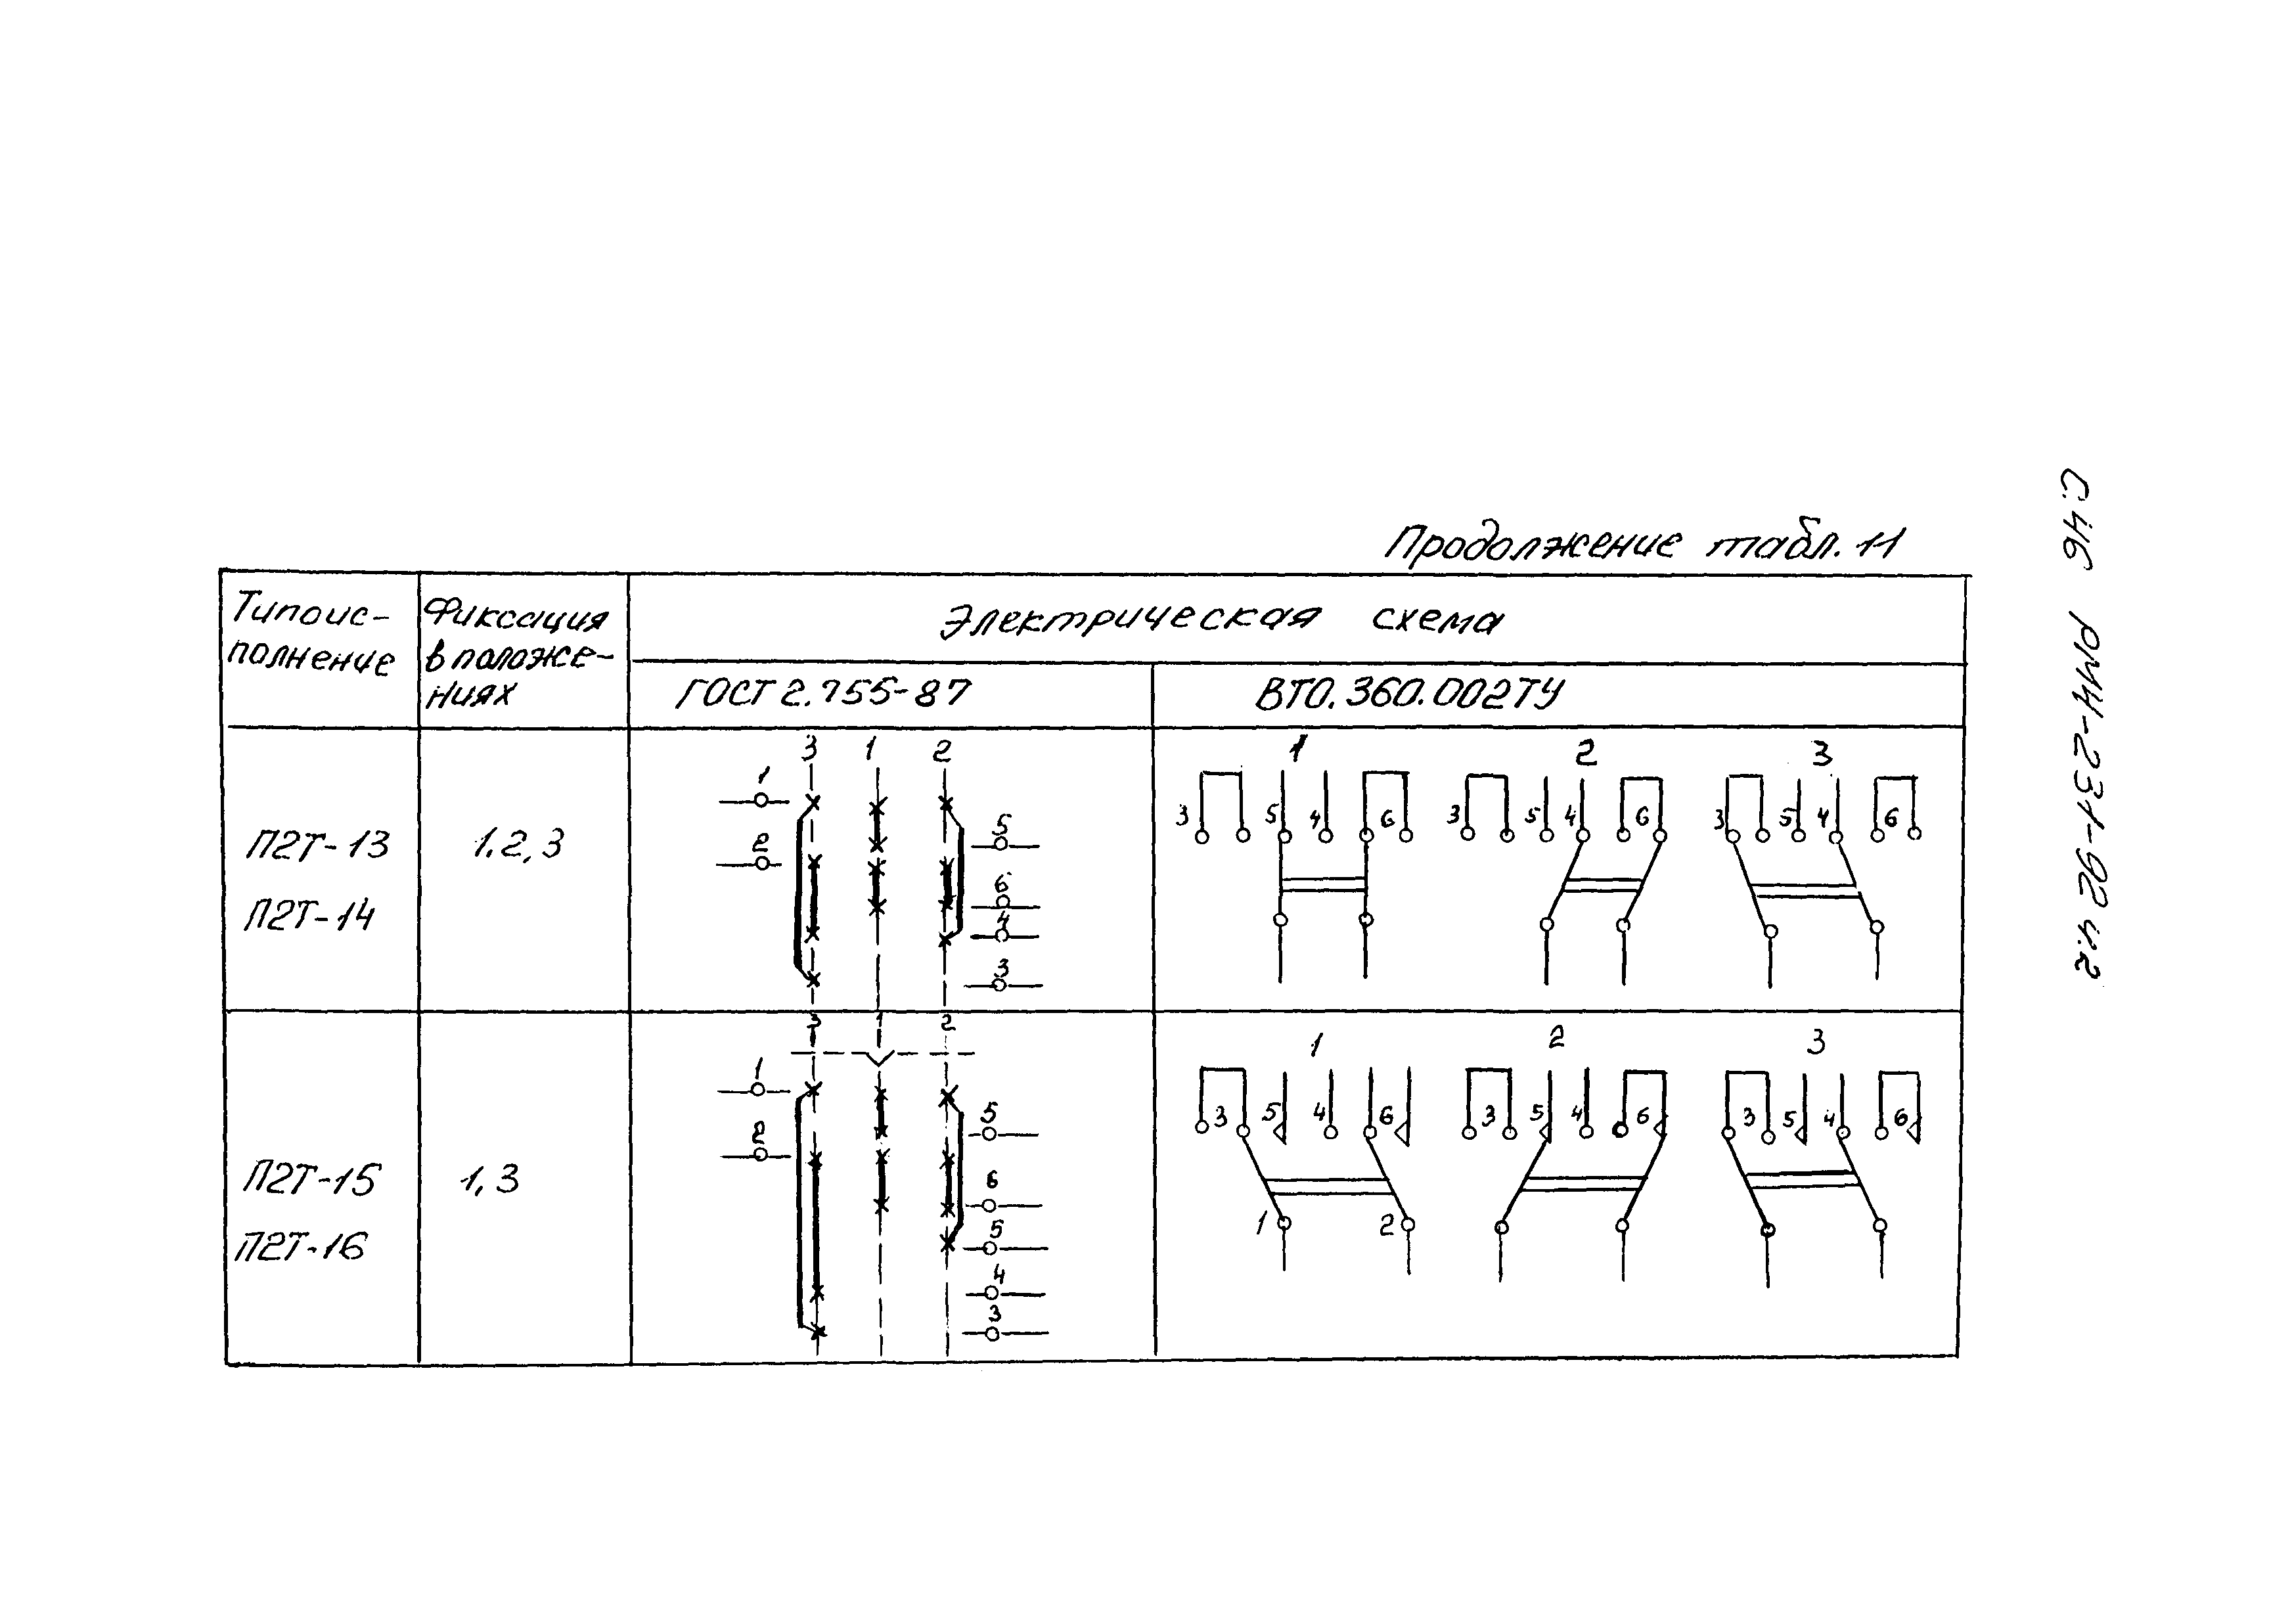 Продолжение табл. 11
Типоис-
полнение
Фиксация
в положе-
ниях
Электрическая схема
ГОСТ 2.755-87
ВТО.360.002ТУ
П2Т-13
П2Т-14
1.2,3
3 1 2
1
5
2
6
4
3
1 2 3
3 5 4 6 3 5 4 6 3 5 4 6
П2Т-15
П2Т-16
1,3
3 1 2
1
5
2
6
5
4
3
1 2 3
3 5 4 6 3 5 4 6 3 5 4 6
1 2
С.46 РМ4-231-92 ч.2